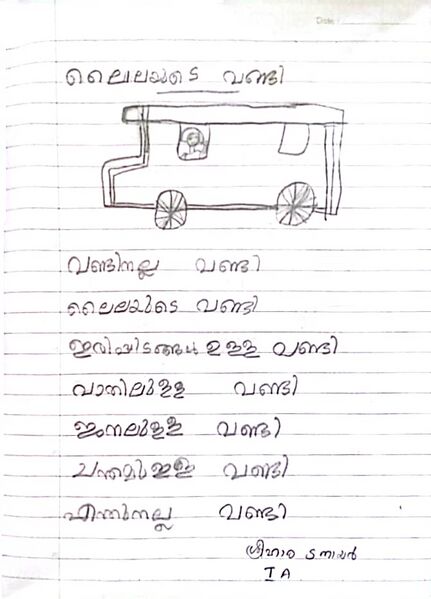 Date :
ലൈലയുടെ വണ്ടി
വണ്ടിനല്ല വണ്ടി
ലൈലയുടെ വണ്ടി
ഇരിപ്പിടങ്ങൾ ഉള്ള വണ്ടി
വാതിലുള്ള വണ്ടി
ജനലുള്ള വണ്ടി
ചന്തമുള്ള വണ്ടി
എന്തുനല്ല വണ്ടി
ശ്രീഹാര S നായർ
I A